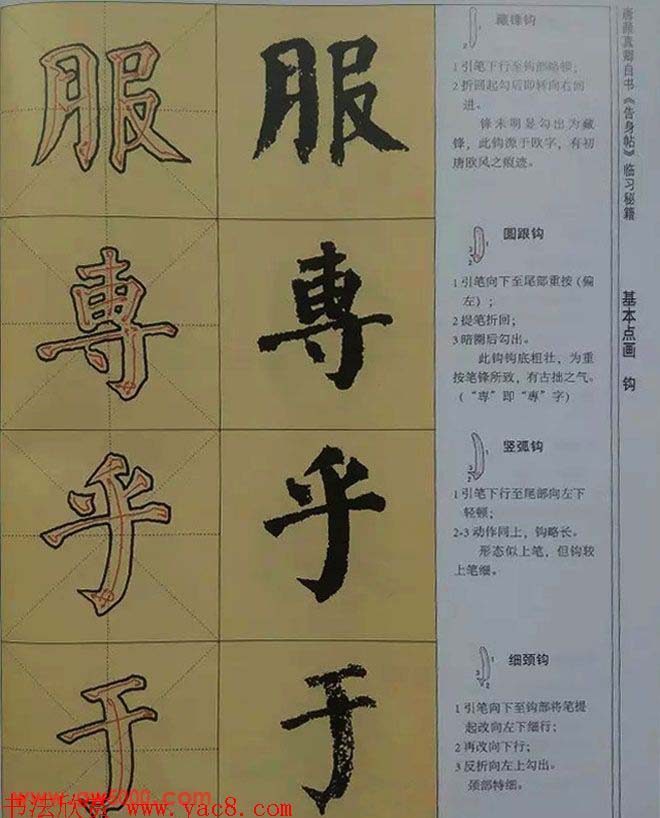 唐颜真卿自书《告身帖》临习秘籍
基本点画 钩
服 服
藏锋钩
1
2
1 引笔下行至钩部略顿;
2 折画起勾后即转向右回
进。
锋未明显勾出为藏
锋,此钩源于欧字,有初
唐欧风之痕迹。
專 專
圆跟钩
1
3
2
1 引笔向下至尾部重按(偏
左);
2 提笔折回;
3 暗圈后勾出。
此钩钩底粗壮,为重
按笔锋所致,有古拙之气。
(“専”即“專”字)
乎 乎
竖弧钩
1
3
2
1 引笔下行至尾部向左下
轻顿;
2-3 动作同上,钩略长。
形态似上笔,但钩较
上笔细。
于 于
细颈钩
1
3
2
1 引笔向下至钩部将笔提
起改向左下细行;
2 再改向下行;
3 反折向左上勾出。
颈部特细。
书法欣赏 www.yac8.com